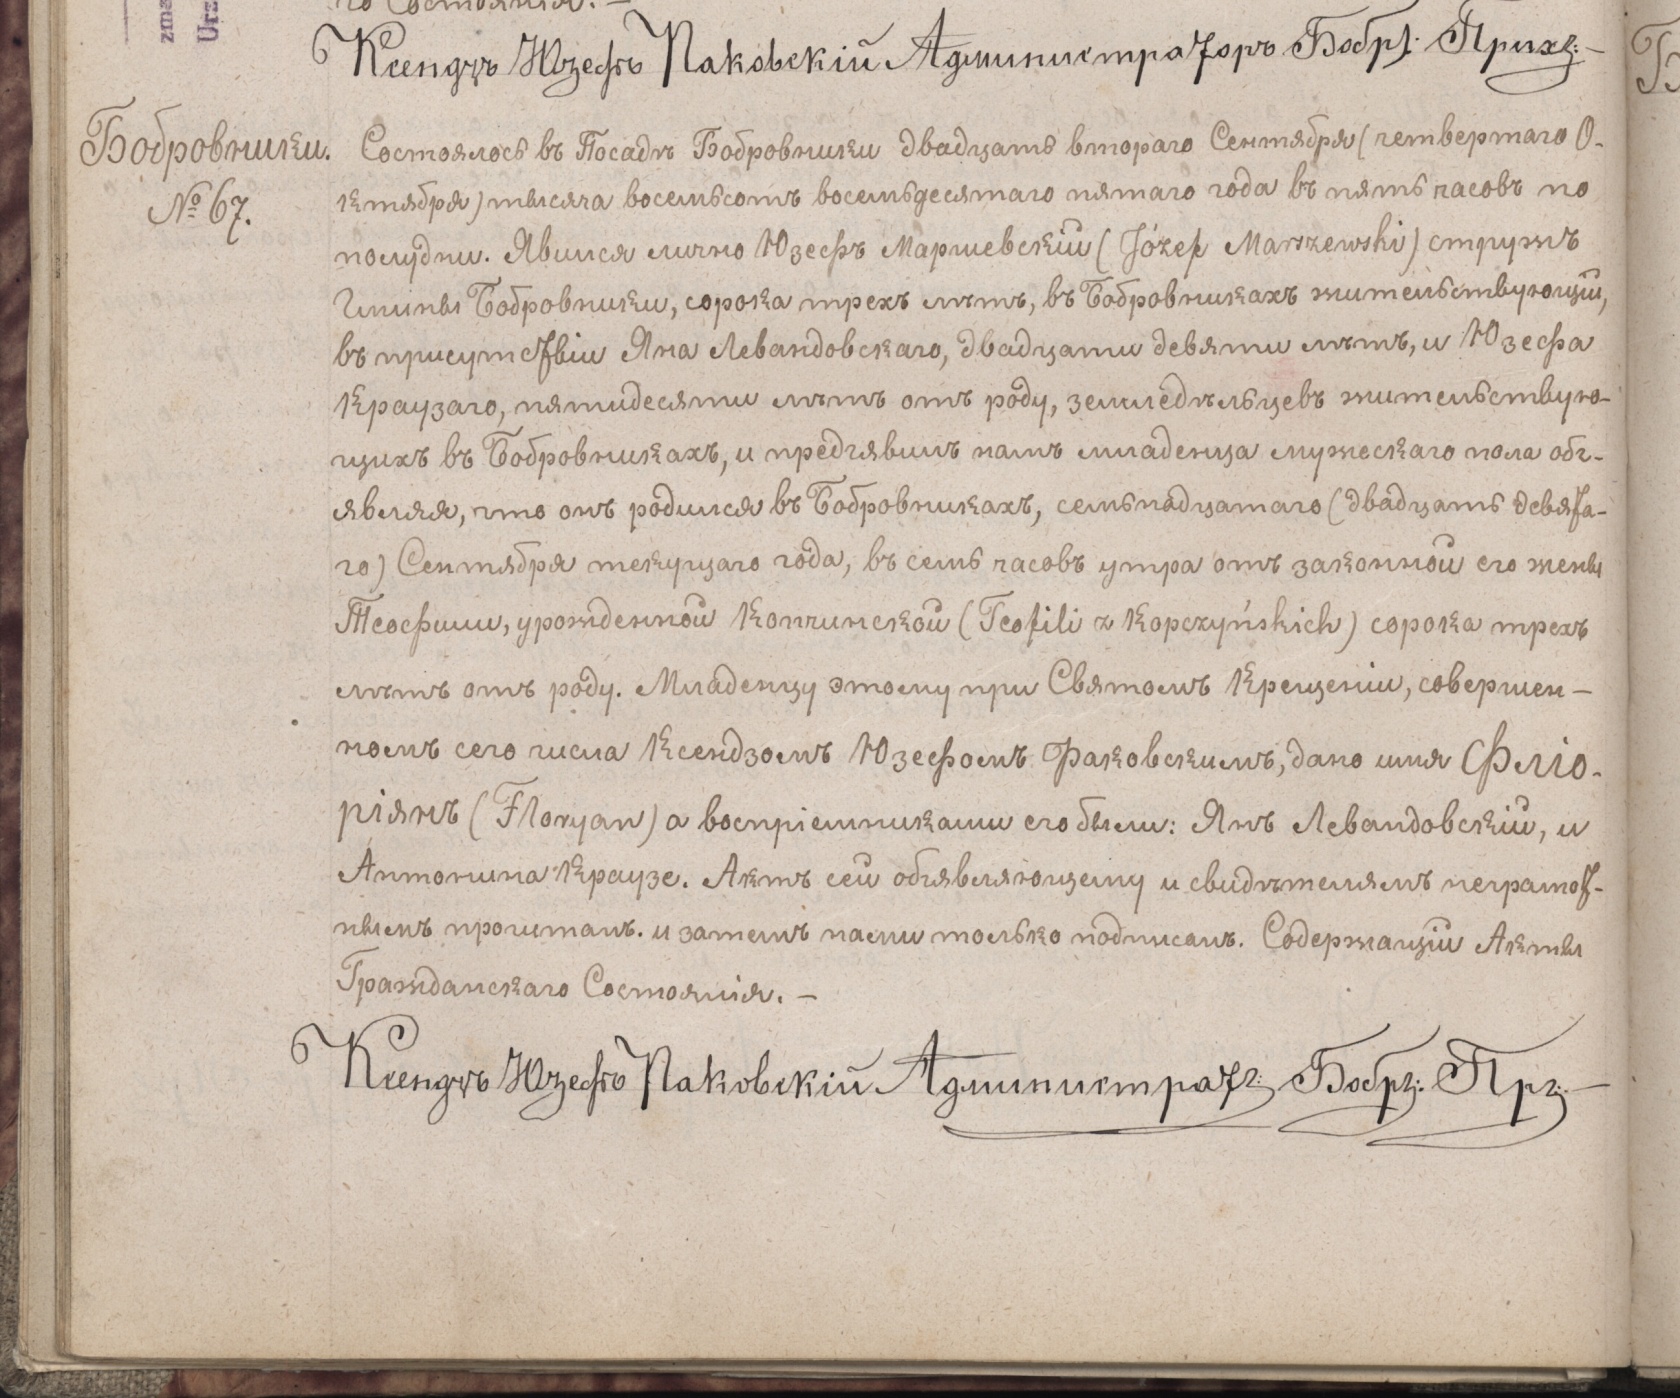 го Состоянія. —
Ксендзъ Юзефъ Паковскій Администраторъ Бобр: Прих: —
Бобровники. Состоялось въ Посадѣ Бобровники двадцать втораго Сентября (четвертаго О-
№ 67. ктября) тысяча восемьсотъ восемьдесятаго пятаго года въ пять часовъ по
полудни. Явился лично Юзефъ Маршевскій (Józef Marszewski) стружъ
Гмины Бобровники, сорока трехъ лѣтъ, въ Бобровникахъ жительствующій,
въ присутствіи Яна Левандовскаго, двадцати девяти лѣтъ, и Юзефа
Краузаго, пятидесяти лѣтъ отъ роду, земледѣльцевъ жительствую-
щихъ въ Бобровникахъ, и предъявилъ намъ младенца мужескаго пола объ-
являя, что онъ родился въ Бобровникахъ, семьнадцатаго (двадцать девята-
го) Сентября текущаго года, въ семь часовъ утра отъ законной его жены
Теофили, урожденной Копчинской (Teofili z Kopczyńskich) сорока трехъ
лѣтъ отъ роду. Младенцу этому при Святомъ Крещеніи, совершен-
номъ сего числа Ксендзомъ Юзефомъ Паковскимъ, дано имя Фліо-
ріянъ (Floryan) а воспріемниками его были: Янъ Левандовскій, и
Антонина Краузе. Актъ сей объявляющему и свидѣтелямъ неграмот-
нымъ прочитанъ. и затемъ нами только подписанъ. Содержащій Акты
Гражданскаго Состоянія. —
Ксендзъ Юзефъ Паковскій Администрат: Бобр: Пр: —